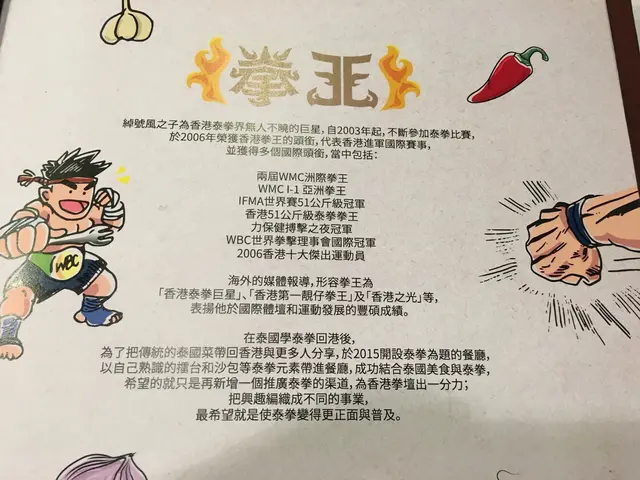 拳王
綽號風之子為香港泰拳界無人不曉的巨星，自2003年起，不斷參加泰拳比賽，
於2006年榮獲香港拳王的頭銜，代表香港進軍國際賽事，
並獲得多個國際頭銜，當中包括：
兩屆WMC洲際拳王
WMC I-1 亞洲拳王
IFMA世界賽51公斤級冠軍
香港51公斤級泰拳拳王
力保健搏擊之夜冠軍
WBC世界拳擊理事會國際冠軍
2006香港十大傑出運動員
海外的媒體報導，形容拳王為
「香港泰拳巨星」、「香港第一靚仔拳王」及「香港之光」等，
表揚他於國際體壇和運動發展的豐碩成績。
在泰國學泰拳回港後，
為了把傳統的泰國菜帶回香港與更多人分享，於2015開設泰拳為題的餐廳，
以自己熟識的擂台和沙包等泰拳元素帶進餐廳，成功結合泰國美食與泰拳，
希望的就只是再新增一個推廣泰拳的渠道，為香港拳壇出一分力；
把興趣編織成不同的事業，
最希望就是使泰拳變得更正面與普及。
WBC